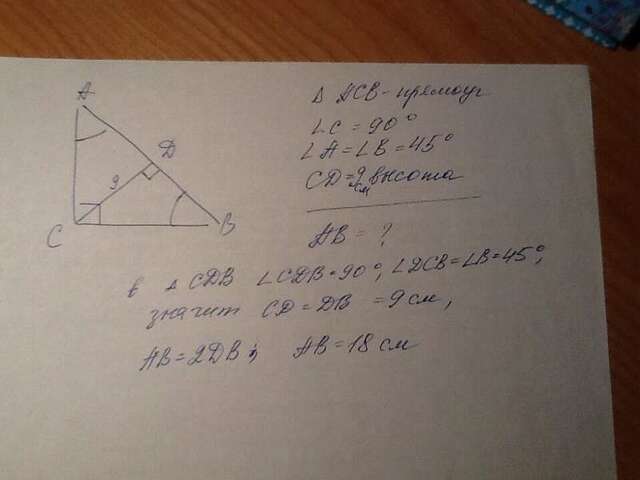 A
D
9
C
B
Δ ACB - прямоуг
∠C = 90°
∠A = ∠B = 45°
CD = 9 см высота
AB = ?
в Δ CDB ∠CDB = 90°, ∠DCB = ∠B = 45°,
значит CD = DB = 9 см,
AB = 2DB; AB = 18 см